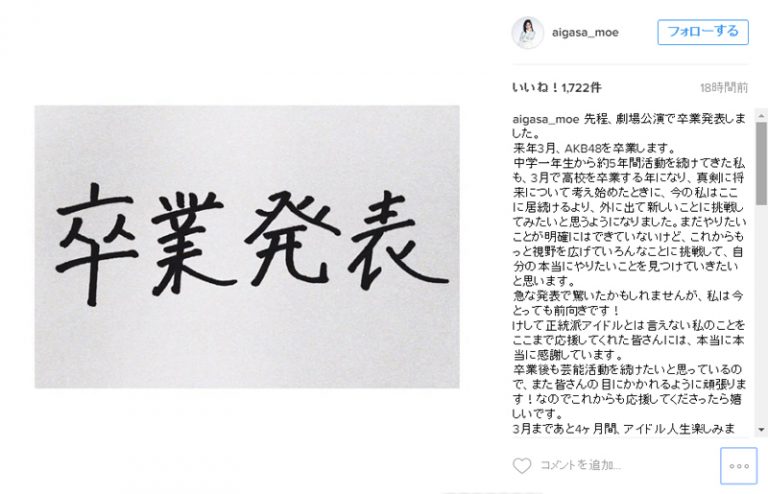 卒業発表
aigasa_moe
フォローする
いいね！1,722件
18時間前
aigasa_moe 先程、劇場公演で卒業発表しま
した。
来年3月、AKB48を卒業します。
中学一年生から約5年間活動を続けてきた私
も、3月で高校を卒業する年になり、真剣に将
来について考え始めたときに、今の私はここ
に居続けるより、外に出て新しいことに挑戦し
てみたいと思うようになりました。まだやりたい
ことが明確にはできていないけど、これからも
っと視野を広げていろんなことに挑戦して、自
分の本当にやりたいことを見つけていきたい
と思います。
急な発表で驚いたかもしれませんが、私は今
とっても前向きです！
けして正統派アイドルとは言えない私のことを
ここまで応援してくれた皆さんには、本当に本
当に感謝しています。
卒業後も芸能活動を続けたいと思っているの
で、また皆さんの目にかかれるように頑張りま
す！なのでこれからも応援してくださったら嬉
しいです。
3月まであと4ヶ月間、アイドル人生楽しみま
コメントを追加...